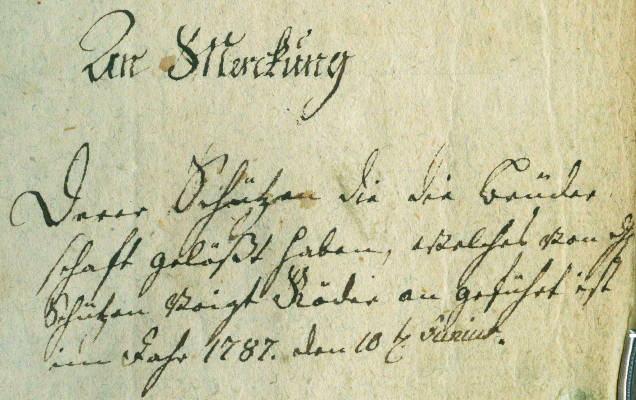 An Merckung
Derer Schützen die die Brüder
schaft gelößt haben, welches von
Schützen Voigt Röder an geführt ist
im Jahr 1787. den 10 Junius.